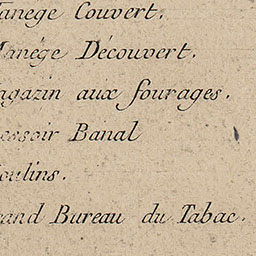 anege Couvert.
Manége Découvert.
agazin aux fourages.
essoir Banal
oulins.
rand Bureau du Tabac.